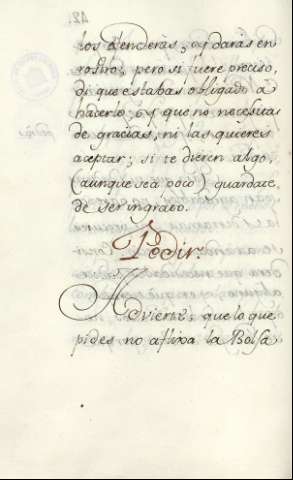 los ofenderàs, o ȷ darás en
rostro; pero si fuere preciso,
di que estabas obligado a
hacerlo, o y que no necesitas
de gracias, ni las quieres
aceptar; si te dieren algo,
(aunque sea poco) guardate
de ser ingrato.
Pedir.
Advierte, que lo que
pides no aflixa la Bolsa